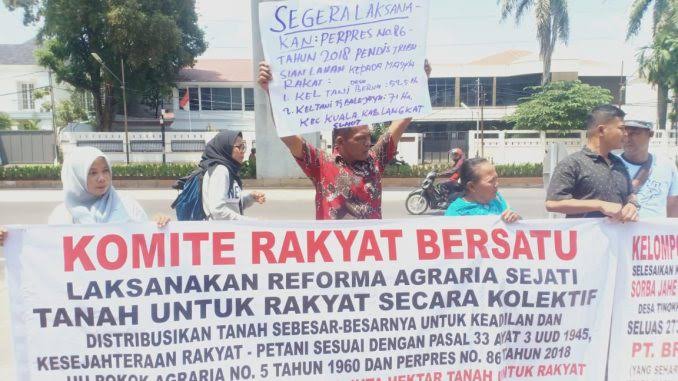 SEGERA LAKSANA-
KAN: PERPRES NO. 86-
TAHUN 2018 PENDISTRIBU
SIAN LAHAN KEPADA MASYA
RAKAT: DESA
1. KEL TANI 59.5 Ha
2. KEL TANI 71 Ha
KEC KUALA. KAB LANGKAT
SUMUT
KOMITE RAKYAT BERSATU
LAKSANAKAN REFORMA AGRARIA SEJATI
TANAH UNTUK RAKYAT SECARA KOLEKTIF
DISTRIBUSIKAN TANAH SEBESAR-BESARNYA UNTUK KEADILAN DAN
KESEJAHTERAAN RAKYAT - PETANI SESUAI DENGAN PASAL 33 AYAT 3 UUD 1945,
UU POKOK AGRARIA NO. 5 TAHUN 1960 DAN PERPRES NO. 86 TAHUN 2018
HEKTAR TANAH
KELOMP
SELESAIKAN
SORBA JAHE
DESA
SELUAS 27
PT. B
(YANG SEHAR